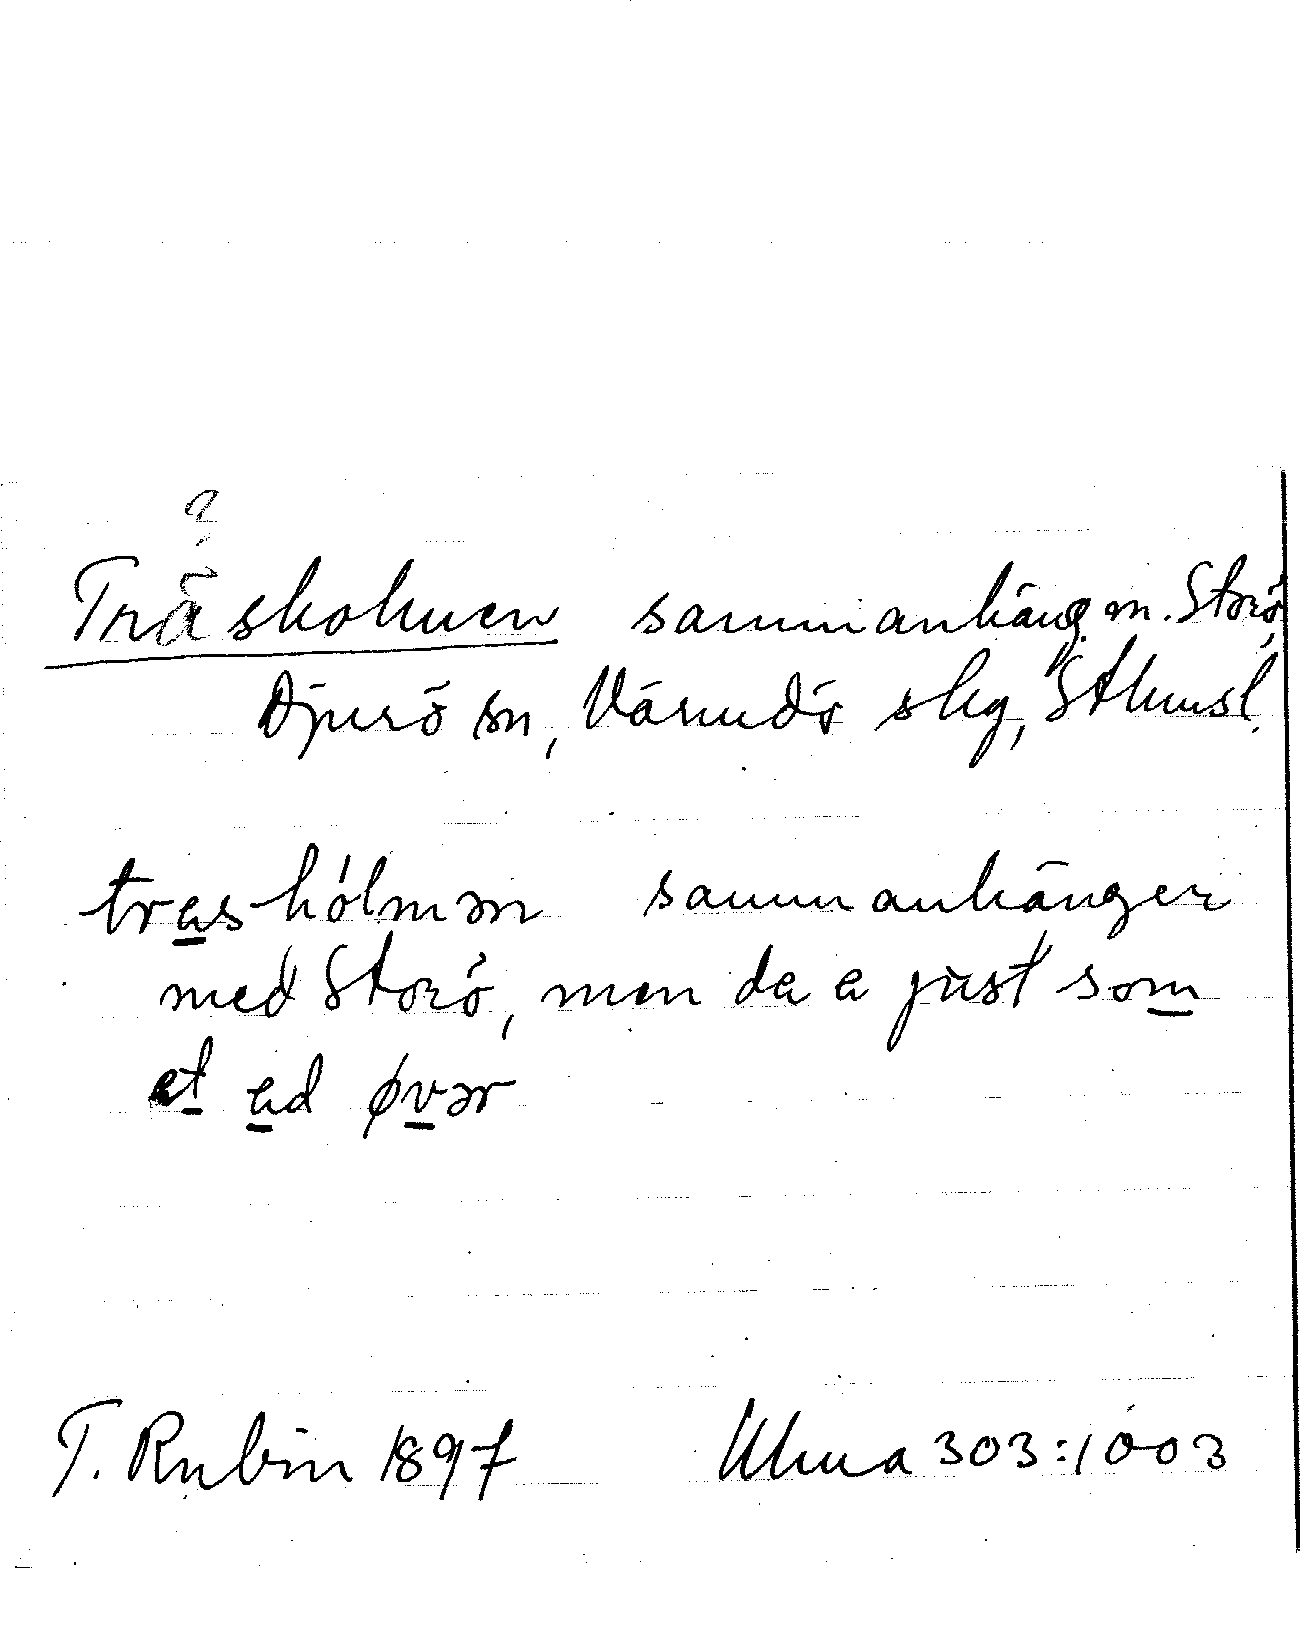 a
Träskholmen sammanhäng. m. Storö,
Djurö sn, Värmdö skg, Sthmsl.
trashólmən sammanhänger
med Storö, mən da a just som
et ad øvər
T. Rubin 1897 Ulma 303:1003